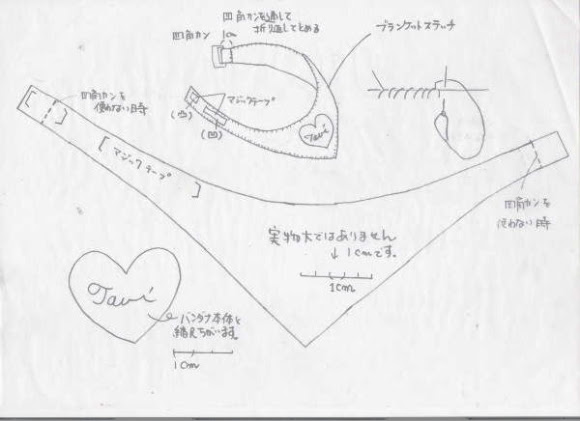 四角カン
1cm
四角カンを通して
折り返してとめる
ブランケットステッチ
マジックテープ
(凸)
(凹)
Tavi
四角カンを
使わない時
マジックテープ
四角カンを
使わない時
実物大ではありません
↓1cmです。
1cm
Tavi
バンダナ本体と
縮尺ちがいます。
1cm